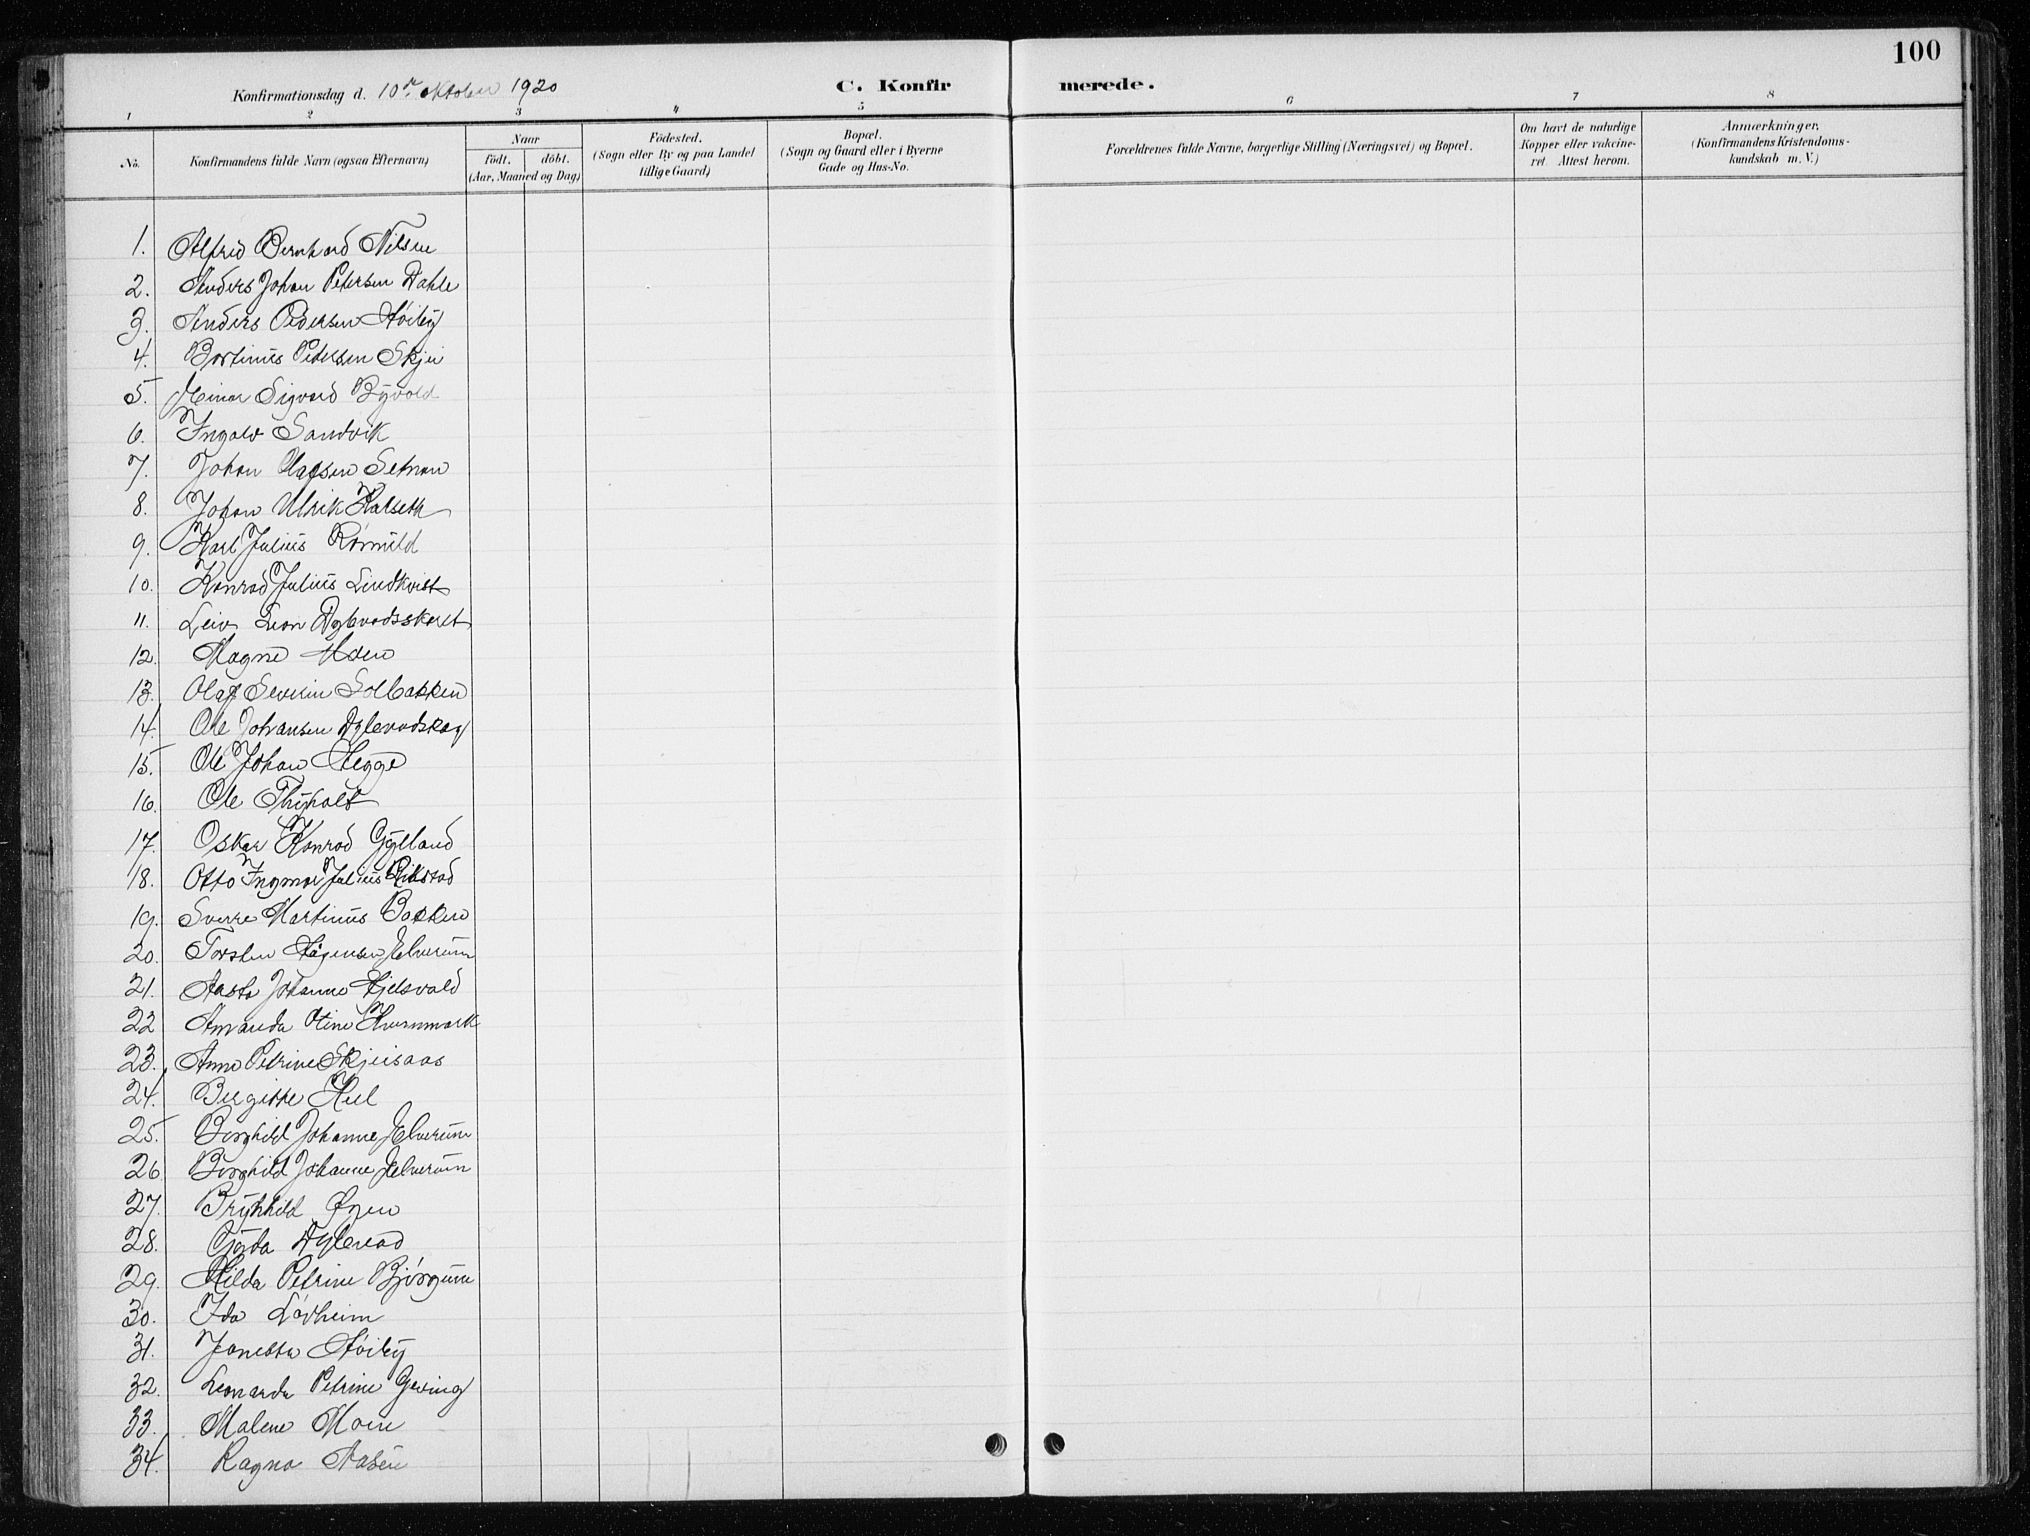 100
Konfirmationsdag d. 10de Oktober 1920
C. Konfirmerede.
1 2 3 4 5 6 7 8
No.
Konfirmandens fulde Navn (ogsaa Efternavn)
Naar
födt. döbt.
(Aar, Maaned og Dag)
Födested.
(Sogn eller By og paa Landet
tillige Gaard)
Bopæl.
(Sogn og Gaard eller i Byerne
Gade og Hus-No.
Forældrenes fulde Navne, borgerlige Stilling (Næringsvei) og Bopæl.
Om havt de naturlige
Kopper eller vakcine-
ret. Attest herom.
Anmærkninger.
(Konfirmandens Kristendoms-
kundskab m. V.)
1. Alfred Bernhard Nilsen
2. Anders Johan Petersen Dahle
3. Anders Pedersen Høiby
4. Bortinus Petersen Skjei
5. Einar Sigvard Byvold
6. Ingolv Sandvik
7. Johan Olafsen Setnan
8. Johan Ulrik Halseth
9. Karl Julius Rønnild
10. Konrad Julius Lindkvist
11. Leiv Leon Dylevodsskaret
12. Magne Moen
13. Olaf Severin Solbakken
14. Ole Johansen Dylevodskog
15. Ole Johan Hegge
16. Ole Thyholt
17. Oskar Konrad Gylland
18. Otto Ingmar Julius Rikstad
19. Sverre Martinus Bakken
20. Torsten Høgensen Elverum
21. Aasta Johanne Hjelsvold
22 Amanda Otine Kvernmark
23. Anna Petrine Skjeisaas
24. Birgitte Kul
25. Borghild Johanne Elverum
26 Borghild Johanne Elverum
27. Brynhild Øyen
28. Gyda Dylevod
29. Hilda Petrine Bjørgum
30. Ida Lødheim
31. Janetta Høiby
32. Leonarda Petrine Geving
33. Malene Moen
34. Ragna Aasen